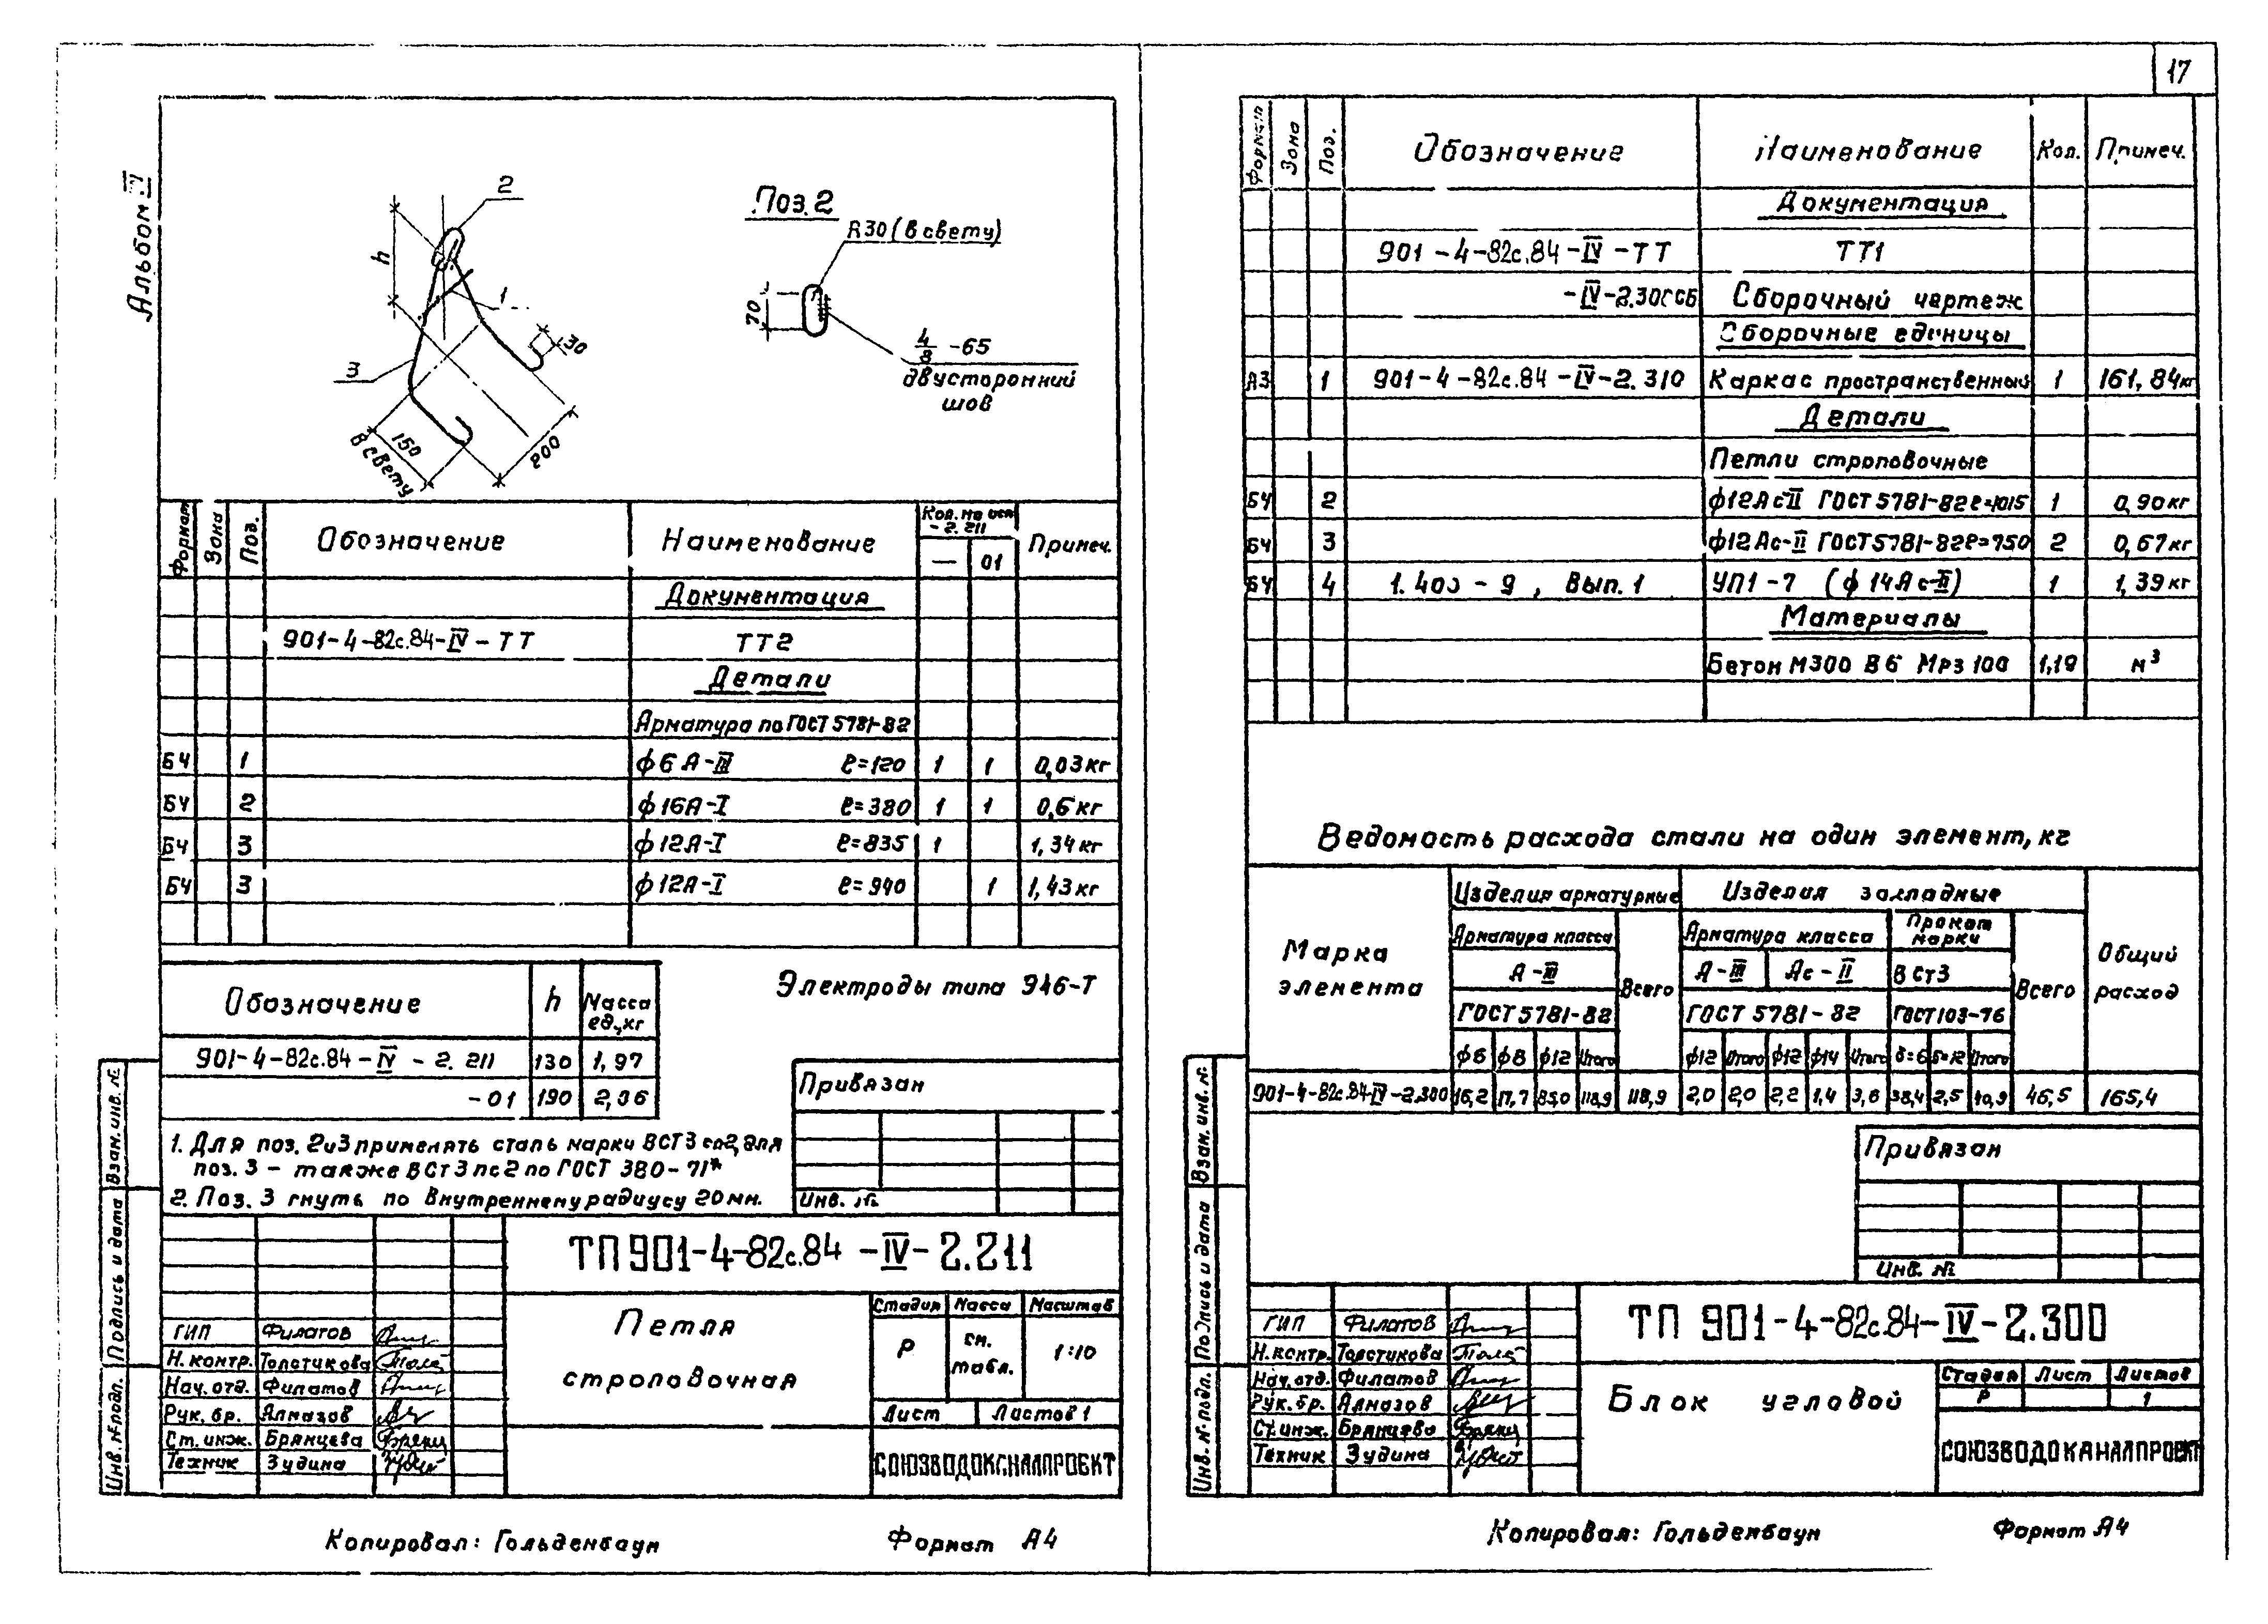 17
Альбом IV
2
h
1
3
30
150
в свету
200
Поз. 2
R30 (в свету)
70
65
двусторонний
шов
Формат Зона Поз. Обозначение Наименование Кол. на исп. -2.211 Примеч.
— 01
Документация
901-4-82с.84-IV-ТТ ТТ2
Детали
Арматура по ГОСТ 5781-82
БЧ 1 ф6А-III ℓ=120 1 1 0,03кг
БЧ 2 ф16А-I ℓ=380 1 1 0,6кг
БЧ 3 ф12А-I ℓ=835 1 1,34кг
БЧ 3 ф12А-I ℓ=940 1 1,43кг
Обозначение h Масса ед.,кг
901-4-82с.84-IV-2.211 130 1,97
-01 190 2,06
Электроды типа Э46-Т
Привязан
Инв. №
1. Для поз. 2и3 применять сталь марки ВСТ3сп2, для
поз. 3 - также ВСт3пс2 по ГОСТ 380-71*
2. Поз. 3 гнуть по внутреннему радиусу 20мм.
Взам. инв. №
Подпись и дата
Инв. № подл.
ТП 901-4-82с.84-IV-2.211
Петля
строповочная
Стадия Масса Масштаб
Р см. табл. 1:10
Лист Листов 1
СОЮЗВОДОКАНАЛПРОЕКТ
ГИП Филатов
Н. контр. Толстикова
Нач. отд. Филатов
Рук. бр. Алмазов
Ст. инж. Брянцева
Техник Зудина
Копировал: Гольденбаум Формат А4
Формат Зона Поз. Обозначение Наименование Кол. Примеч.
Документация
901-4-82с.84-IV-ТТ ТТ1
-IV-2.300СБ Сборочный чертеж
Сборочные единицы
А3 1 901-4-82с.84-IV-2.310 Каркас пространственный 1 161,84кг
Детали
Петли строповочные
БЧ 2 ф12Ас-II ГОСТ 5781-82 ℓ=1015 1 0,90кг
БЧ 3 ф12Ас-II ГОСТ 5781-82 ℓ=750 2 0,67кг
БЧ 4 1.400-9, Вып. 1 УП1-7 (ф14Ас-II) 1 1,39кг
Материалы
Бетон М300 В6 Мрз 100 1,19 м³
Ведомость расхода стали на один элемент, кг
Марка элемента Изделия арматурные Изделия закладные Общий расход
Арматура класса Всего Арматура класса Прокат марки Всего
А-III А-III Ас-II ВСт3
ГОСТ 5781-82 ГОСТ 5781-82 ГОСТ 103-76
ф6 ф8 ф12 Итого ф12 Итого ф12 ф14 Итого δ=6 δ=12 Итого
901-4-82с.84-IV-2.300 16,2 17,7 85,0 118,9 118,9 2,0 2,0 2,2 1,4 3,6 38,4 2,5 40,9 46,5 165,4
Привязан
Инв. №
Взам. инв. №
Подпись и дата
Инв. № подл.
ТП 901-4-82с.84-IV-2.300
Блок угловой
Стадия Лист Листов
Р 1
СОЮЗВОДОКАНАЛПРОЕКТ
ГИП Филатов
Н. контр. Толстикова
Нач. отд. Филатов
Рук. бр. Алмазов
Ст. инж. Брянцева
Техник Зудина
Копировал: Гольденбаум Формат А4